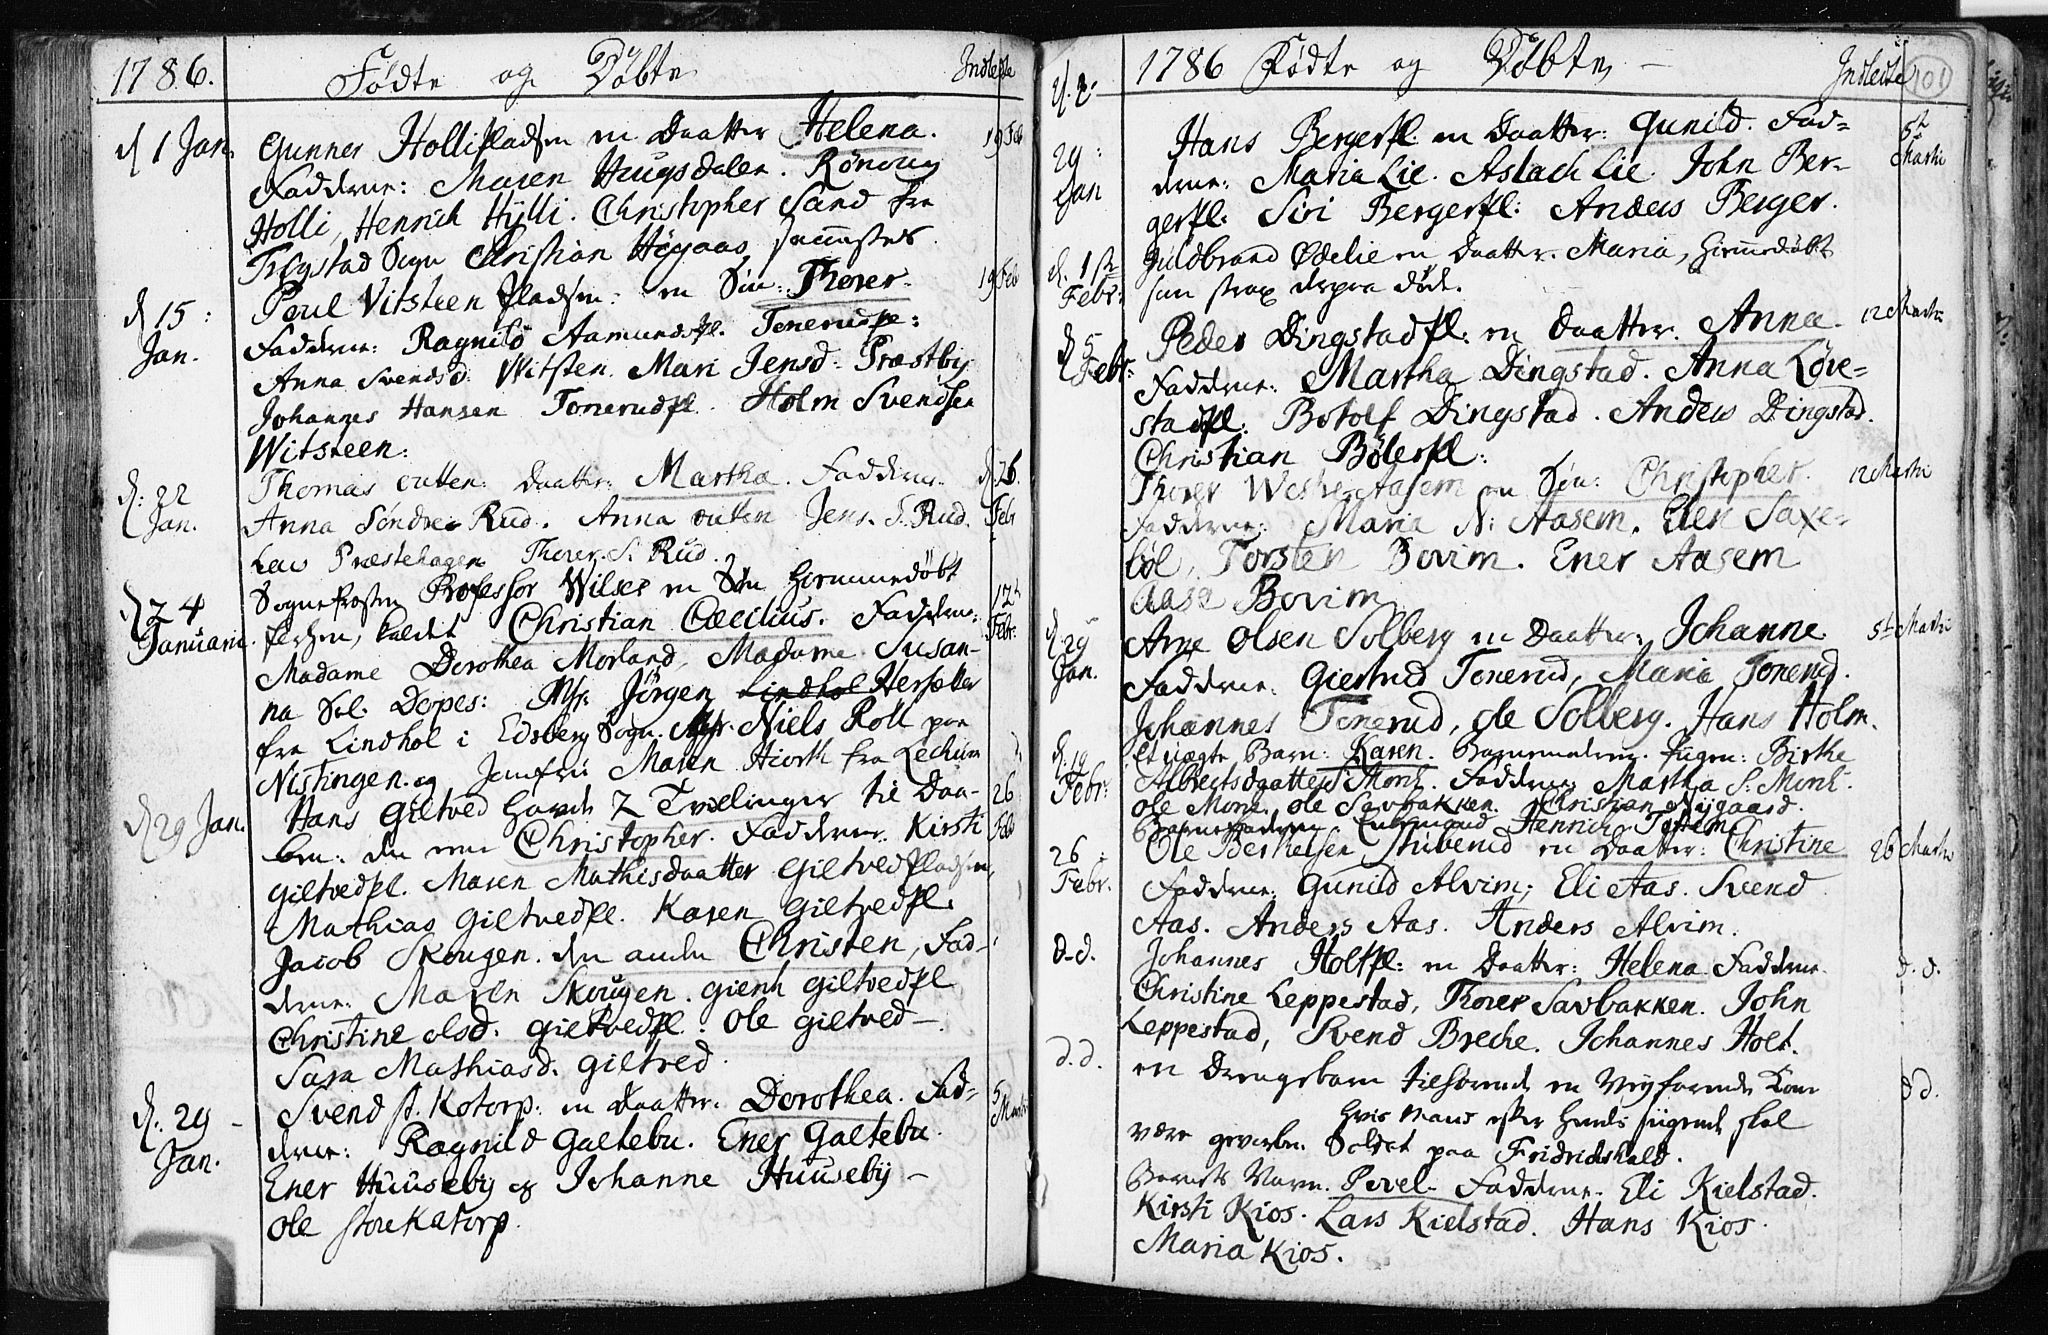 1786. Födte og Döbte Indledte
d 1 Jan. Gunner Hollipladsen en Daatter Helena. 19 Feb
Faddere: Maren Haugsdalen. Rönnoug
Holli, Henrich Hylli. Christopher Sand fra
Trögstad Sogn Christian Högaas sammesteds.
d 15: Jan. Poul Vitsteen Pladsen: en Sön: Thorer. 19 Feb
Faddere: Ragnild Aamundspl. Tonerudpl:
Anna Svendsd. Witsten. Mari Jensd: Præstby
Johannes Hansen Tonerudpl. Holm Svendsen
Witsteen:
d: 22 Jan. Thomas outten: Daatter: Martha. Faddere. d 26 Febr
Anna Söndre Rud. Anna outen Jens. S. Rud.
Lars Præstehagen Thorer. S. Rud.
d 24 Januarii. Sognepresten Professor Wilse en Sön hiemmedöbt 12t Febr:
kaldet Christian Cæcilius. Faddere:
Madame Dorothea Morland, Madame Susan-
na Sal. Dopes: Msr. Jörgen Lindhol Hersætter
fra Lindhol i Edsberg Sogn. Msr. Niels Roll paa
Nistingen. og Jomfru Maren Hiorth fra Lechum
d 29 Jan. Hans Giltved havde 2 Tvellinger til Daa- 26 Feb
ben: den ene Christopher. Faddere. Kirsti
Giltvedpl. Maren Mathisdaatter Giltvedpladsen,
Mathias Giltvedpl. Karen Giltvedpl.
Jacob Skougen. den anden Christen, Fad-
dere: Maren Skougen. Gienh Giltvedpl
Christine olsd. Gieltvedpl. Ole Giltved —
Sara Mathiasd. Giltved.
d. 29 Jan. Svend st. Kotorp: en Daatter. Dorothea. Fad- 5 Martii
dere: Ragnild Galtebu. Ener Galtebu.
Ener Huuseby og Johanne Huuseby —
Ole store Katorp.
1786 Födte og Döbte — Indledte 101
29: Jan Hans Bergerpl. en Daatter: Gunild. Fad- 5t Martii
dere: Maria Lie. Aslach Lie. John Ber-
gerpl. Siri Bergerpl: Anders Berger.
d. 1ste Febr: Guldbrand Ødelie en Daatter. Maria, hiemmedöbt
som strax derpaa döde.
d 5 Febr: Peder Dingstadpl: en Daatter. Anna. 12 Martii
Faddere: Martha Dingstad. Anna Löve-
stadpl: Botolf Dingstad. Anders Dingstad.
Christian Bölerpl:
Thorer Westre Aasem en Sön: Christopher. 12 Martii
Faddere: Maria N: Aasem. Elen Saxe-
böl, Torsten Bovim. Ener Aasem
Aase Bovim
d. 29 Jan. Arne Olsen Solberg en Daatter: Johanne. 5t Martii
Faddere. Giertrud Tonerud, Maria Tonerud.
Johannes Tonerud, Ole Solberg. Hans Holm.
d. 19 Febr: Et uægte Barn: Karen. Barnemoderen. Pigen: Birthe
Albertsdaatter S. Mont. Faddere Martha S. Mont.
Ole Mont. Ole Savbakken. Christian Nygaard.
Barnefaderen Henrich
26: Febr. Ole Berthelsen Stuberud en Daatter: Christine 26 Martii
Faddere: Gunild Alvim; Eli Aas. Svend
Aas. Anders Aas. Anders Alvim.
d.d. Johannes Holtpl: en Daatter: Helena. Faddere. d. d.
Christine Leppestad, Thorer Savbakken. John
Leppestad, Svend Breche. Johannes Holt.
d.d. en Drengebarn tilhörende en veyfarende Kone d d.
hvis Mand efter hendes sigende skal
være geworben Soldat paa Fridrichshald.
Barnets Navn. Povel. Faddere. Eli Kielstad.
Kirsti Kios. Lars Kielstad. Hans Kios.
Maria Kios.